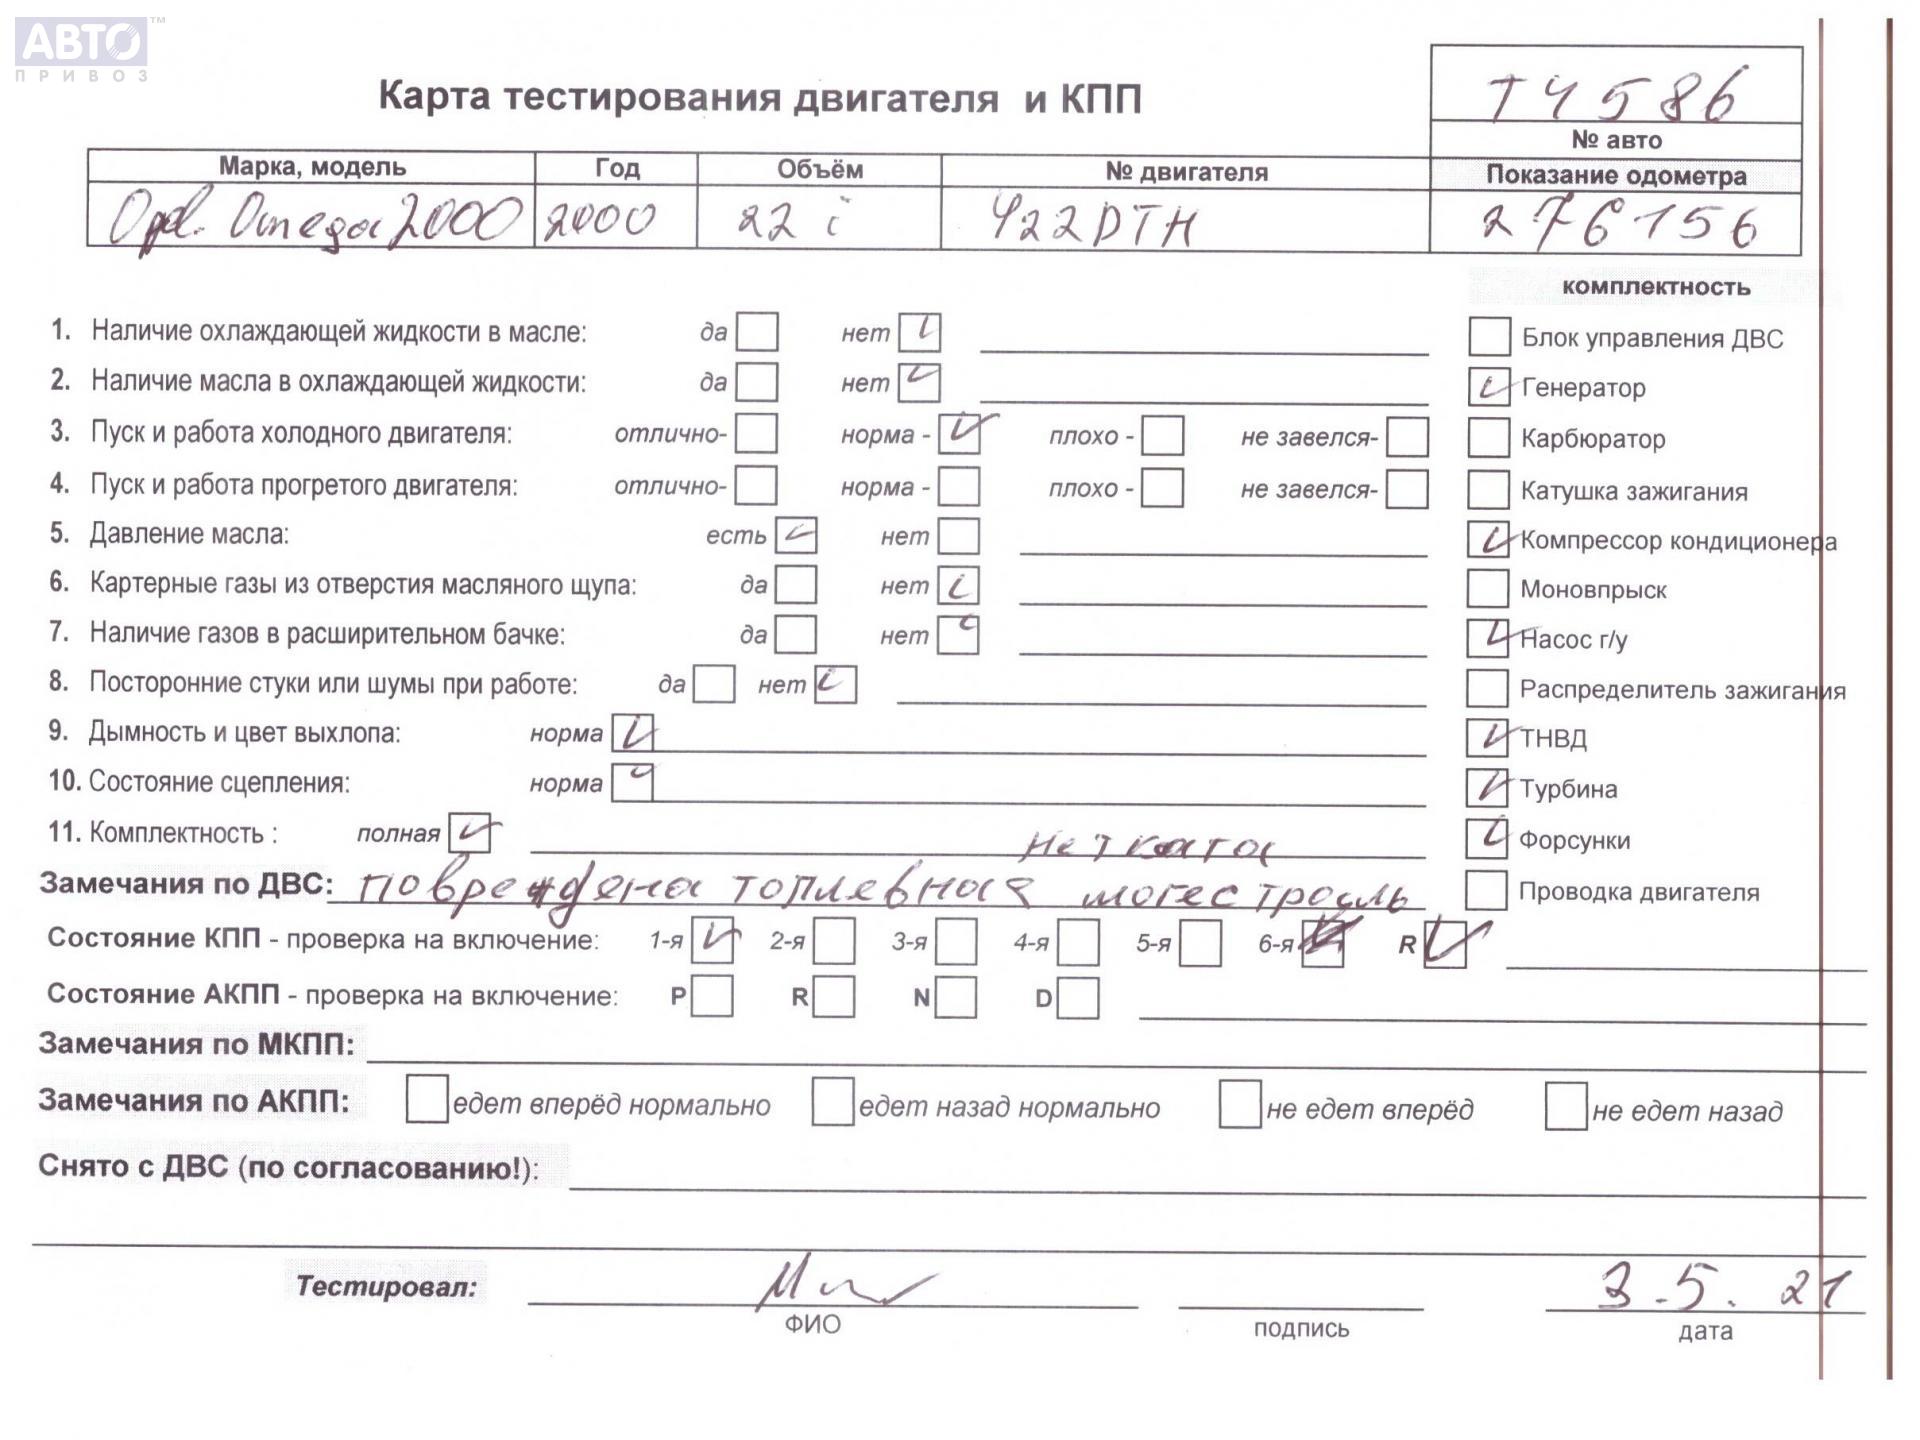 АВТО™
ПРИВОЗ
Карта тестирования двигателя и КПП
Т4586
№ авто
Марка, модель Год Объём № двигателя Показание одометра
Opel. Omega 2000 2000 22 i Y22DTH 276156
комплектность
1. Наличие охлаждающей жидкости в масле: да нет
Блок управления ДВС
2. Наличие масла в охлаждающей жидкости: да нет
Генератор
3. Пуск и работа холодного двигателя: отлично- норма - плохо - не завелся-
Карбюратор
4. Пуск и работа прогретого двигателя: отлично- норма - плохо - не завелся-
Катушка зажигания
5. Давление масла: есть нет
Компрессор кондиционера
6. Картерные газы из отверстия масляного щупа: да нет
Моновпрыск
7. Наличие газов в расширительном бачке: да нет
Насос г/у
8. Посторонние стуки или шумы при работе: да нет
Распределитель зажигания
9. Дымность и цвет выхлопа: норма
ТНВД
10. Состояние сцепления: норма
Турбина
11. Комплектность : полная
Форсунки
нет ката
Замечания по ДВС: повреждена топливная
Проводка двигателя
Состояние КПП - проверка на включение: 1-я 2-я 3-я 4-я 5-я 6-я R
Состояние АКПП - проверка на включение: P R N D
Замечания по МКПП:
Замечания по АКПП: едет вперёд нормально едет назад нормально не едет вперёд не едет назад
Снято с ДВС (по согласованию!):
Тестировал: 3.5.21
ФИО подпись дата